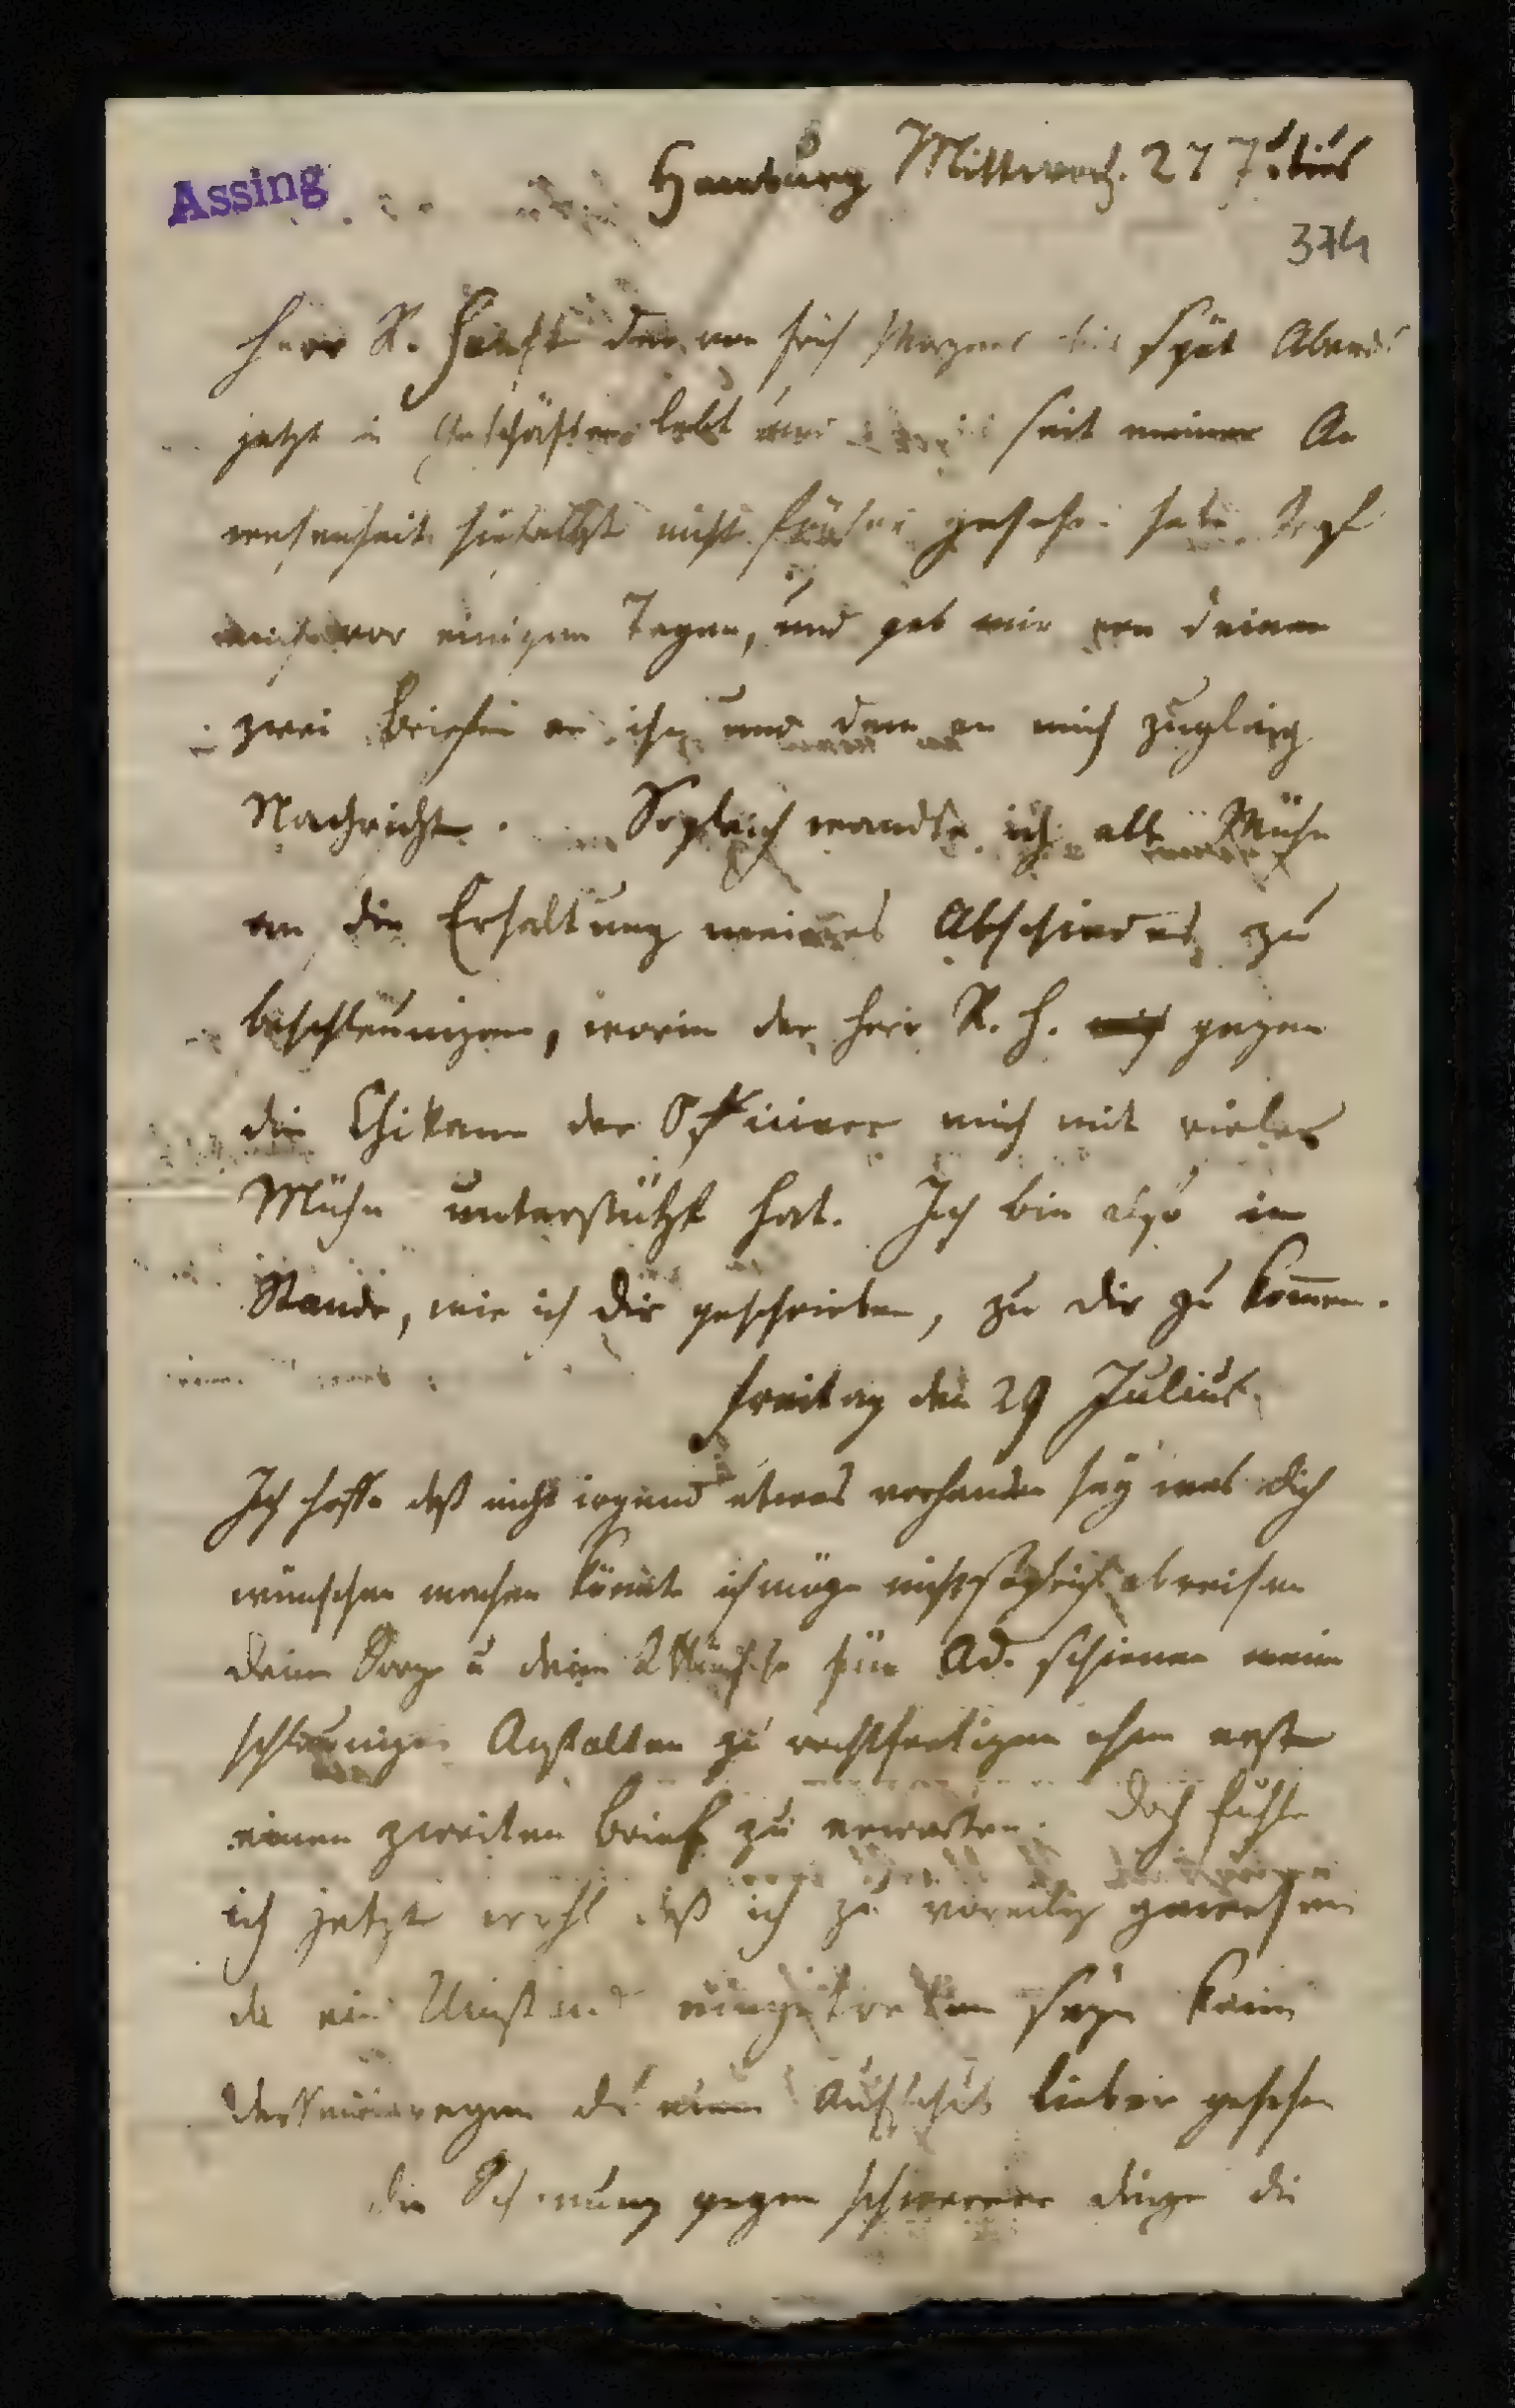 Assing
Hamburg Mittwoch. 27 Julius
374
Herr R. der von früh Morgens bis spät Abends
jetzt in Geschäften lebt und seit meiner An
wesenheit hieselbst nicht früher gesehen habe, traf
mich vor einigen Tagen, und gab mir von deinen
zwei Briefen an ihn und dem an mich zugleich
Nachricht. Sogleich wandte ich alle Mühe
an die Erhaltung meines Abschiedes zu
beschleunigen, worin der Herr R. H. gegen
die Chikane der Offiziere mich mit vieler
Mühe unterstützt hat. Ich bin also im
Stande, wie ich dir geschrieben, zu dir zu kom̅en.
Freitag den 29 Julius.
Ich hoffe daß nicht irgend etwas vorhanden sey was dich
wünschen machen könnte ich möge nicht sogleich abreisen
deine Sorge u deine Wünsche für Ad. schienen meine
schleunigen Anstalten zu rechtfertigen ohne erst
einen zweiten Brief zu erwarten. Doch fühle
ich jetzt wohl daß ich zu voreilig gewesen
da ein Umstand eingetreten seyn kann
dessentwegen du einen Aufschub lieber gesehen
die gegen schwerere dinge die